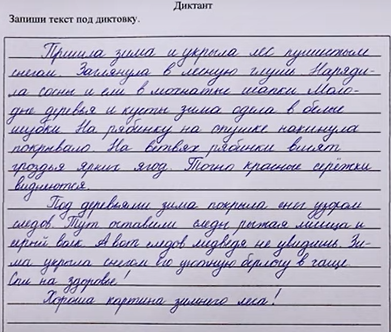 Диктант
Запиши текст под диктовку.
Пришла зима и укрыла лес пушистым
снегом. Заглянула в лесную глушь. Наряди-
ла сосны и ели в мохнатые шапки. Моло-
дые деревья и кусты зима одела в белые
шубки. На рябинку на опушке накинула
покрывало. На ветвях рябинки висят
гроздья ярких ягод. Точно красные серёжки
виднеются.
Под деревьями зима покрыла снег узором
следов. Тут оставили следы рыжая лисица и
серый волк. А вот следов медведя не увидишь. Зи-
ма укрыла снегом его уютную берлогу в чаще.
Спи на здоровье!
Хороша картина зимнего леса!